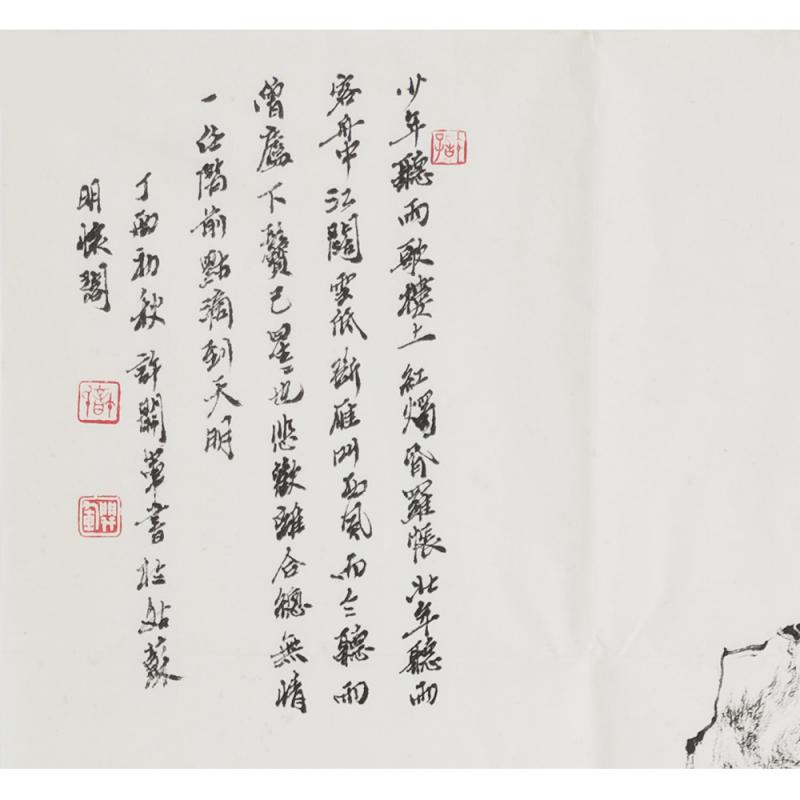 少年聽雨歌樓上紅燭昏羅帳壯年聽雨
客舟中江闊雲低斷雁叫西風而今聽雨
僧廬下鬢已星〻也悲歡離合總無情
一任階前點滴到天明
丁酉初秋許開軍書於姑蘇
明懷閣
許